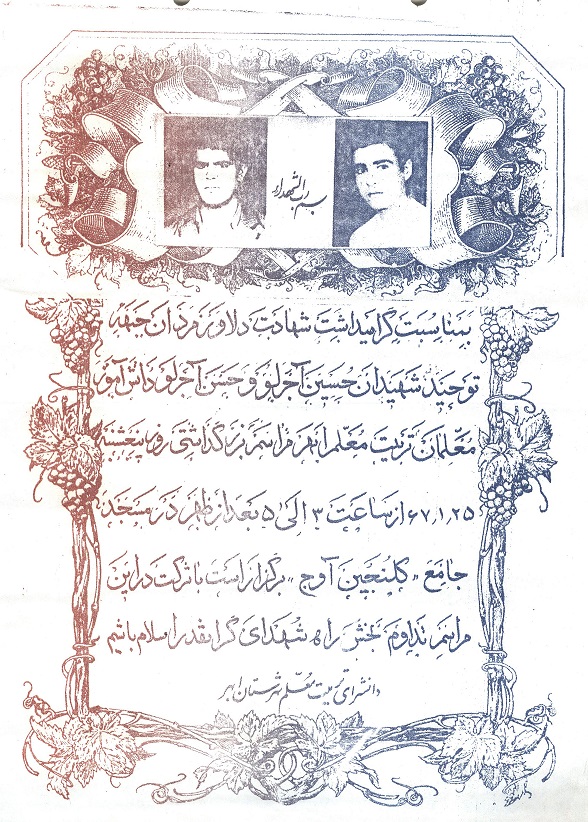 بسم رب الشهداء
بمناسبت گرامیداشت شهادت دلاور مردان جبهه
توحید شهیدان حسین آجرلو و حسن آجرلو دانش آموز
معلمان تربیت معلم ابهر مراسم بزرگداشتی روز پنجشنبه
۶۷،۱،۲۵ از ساعت ۳ الی ۵ بعد از ظهر در مسجد
جامع «کلنجین آوج» برگزار است با شرکت در این
مراسم تداوم بخش راه شهدای گرانقدر اسلام باشیم
دانشسرای تربیت معلم شهرستان ابهر